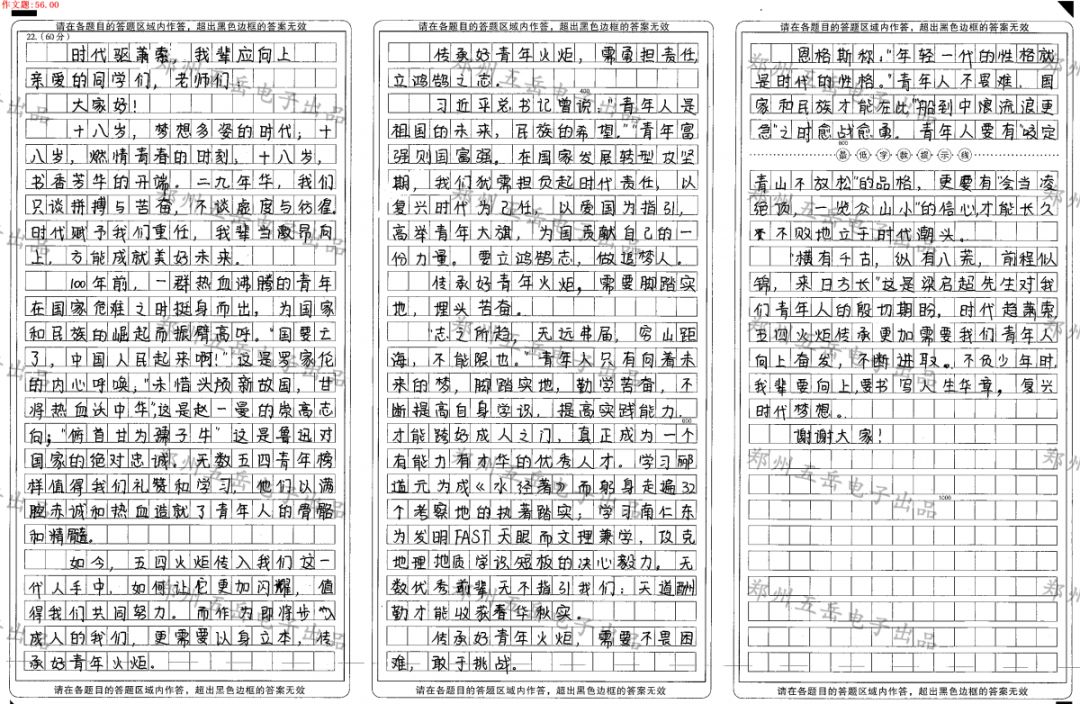 作文题:56.00
请在各题目的答题区域内作答，超出黑色边框的答案无效
22.（60分）
时代驱萧索，我辈应向上
亲爱的同学们，老师们
大家好！
十八岁，梦想多姿的时代；十
八岁，燃情青春的时刻；十八岁，
书香芳华的开端。二九年华，我们
只谈拼搏与苦奋，不谈虚度与彷徨。
时代赋予我们重任，我辈当激昂向
上，方能成就美好未来。
100年前，一群热血沸腾的青年
在国家危难之时挺身而出，为国家
和民族的崛起而振臂高呼。"国要亡
了，中国人民起来啊！"这是罗家伦
的内心呼唤；"未惜头颅新故国，甘
将热血沃中华"，这是赵一曼的崇高志
向；"俯首甘为孺子牛"这是鲁迅对
国家的绝对忠诚。无数五四青年榜
样值得我们礼赞和学习，他们以满
腔赤诚和热血造就了青年人的骨骼
和精髓。
如今，五四火炬传入我们这一
代人手中，如何让它更加闪耀，值
得我们共同努力。而作为即将步入
成人的我们，更需要以身立本，传
承好青年火炬。
请在各题目的答题区域内作答，超出黑色边框的答案无效
请在各题目的答题区域内作答，超出黑色边框的答案无效
传承好青年火炬，需勇担责任，
立鸿鹄之志。
400
习近平总书记曾说："青年人是
祖国的未来，民族的希望。""青年富
强则国富强。在国家发展转型攻坚
期，我们犹需担负起时代责任，以
复兴时代为己任，以爱国为指引，
高举青年大旗，为国贡献自己的一
份力量。要立鸿鹄志，做追梦人。
传承好青年火炬，需要脚踏实
地，埋头苦奋。
"志之所趋，无远弗届，穷山距
海，不能限也。"青年人只有向着未
来的梦，脚踏实地，勤学苦奋，不
断提高自身学识，提高实践能力，
600
才能跨好成人之门，真正成为一个
有能力有才华的优秀人才。学习郦
道元为成《水经著》而躬身走遍32
个考察地的执著踏实；学习南仁东
为发明FAST天眼而文理兼学，攻克
地理地质学识短板的决心毅力。无
数代优秀前辈无不指引我们：天道酬
勤才能收获春华秋实。
传承好青年火炬，需要不畏困
难，敢于挑战。
请在各题目的答题区域内作答，超出黑色边框的答案无效
请在各题目的答题区域内作答，超出黑色边框的答案无效
恩格斯称："年轻一代的性格就
是时代的性格。"青年人不畏难，国
家和民族才能在此"船到中流浪更
急"之时愈战愈勇。青年人要有"咬定
800
最低字数提示线
青山不放松"的品格，更要有"会当凌
绝顶，一览众山小"的信心，才能长久
不败地立于时代潮头。
"横有千古，纵有八荒，前程似
锦，来日方长"这是梁启超先生对我
们青年人的殷切期盼，时代趋萧索，
五四火炬传承更加需要我们青年人
向上奋发，不断进取。不负少年时，
我辈要向上，要书写人生华章，复兴
时代梦想。
谢谢大家！
1000
请在各题目的答题区域内作答，超出黑色边框的答案无效
郑州五岳电子出品